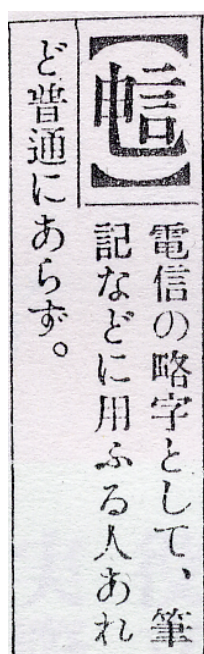 電信の略字として、筆
記などに用ふる人あれ
ど普通にあらず。